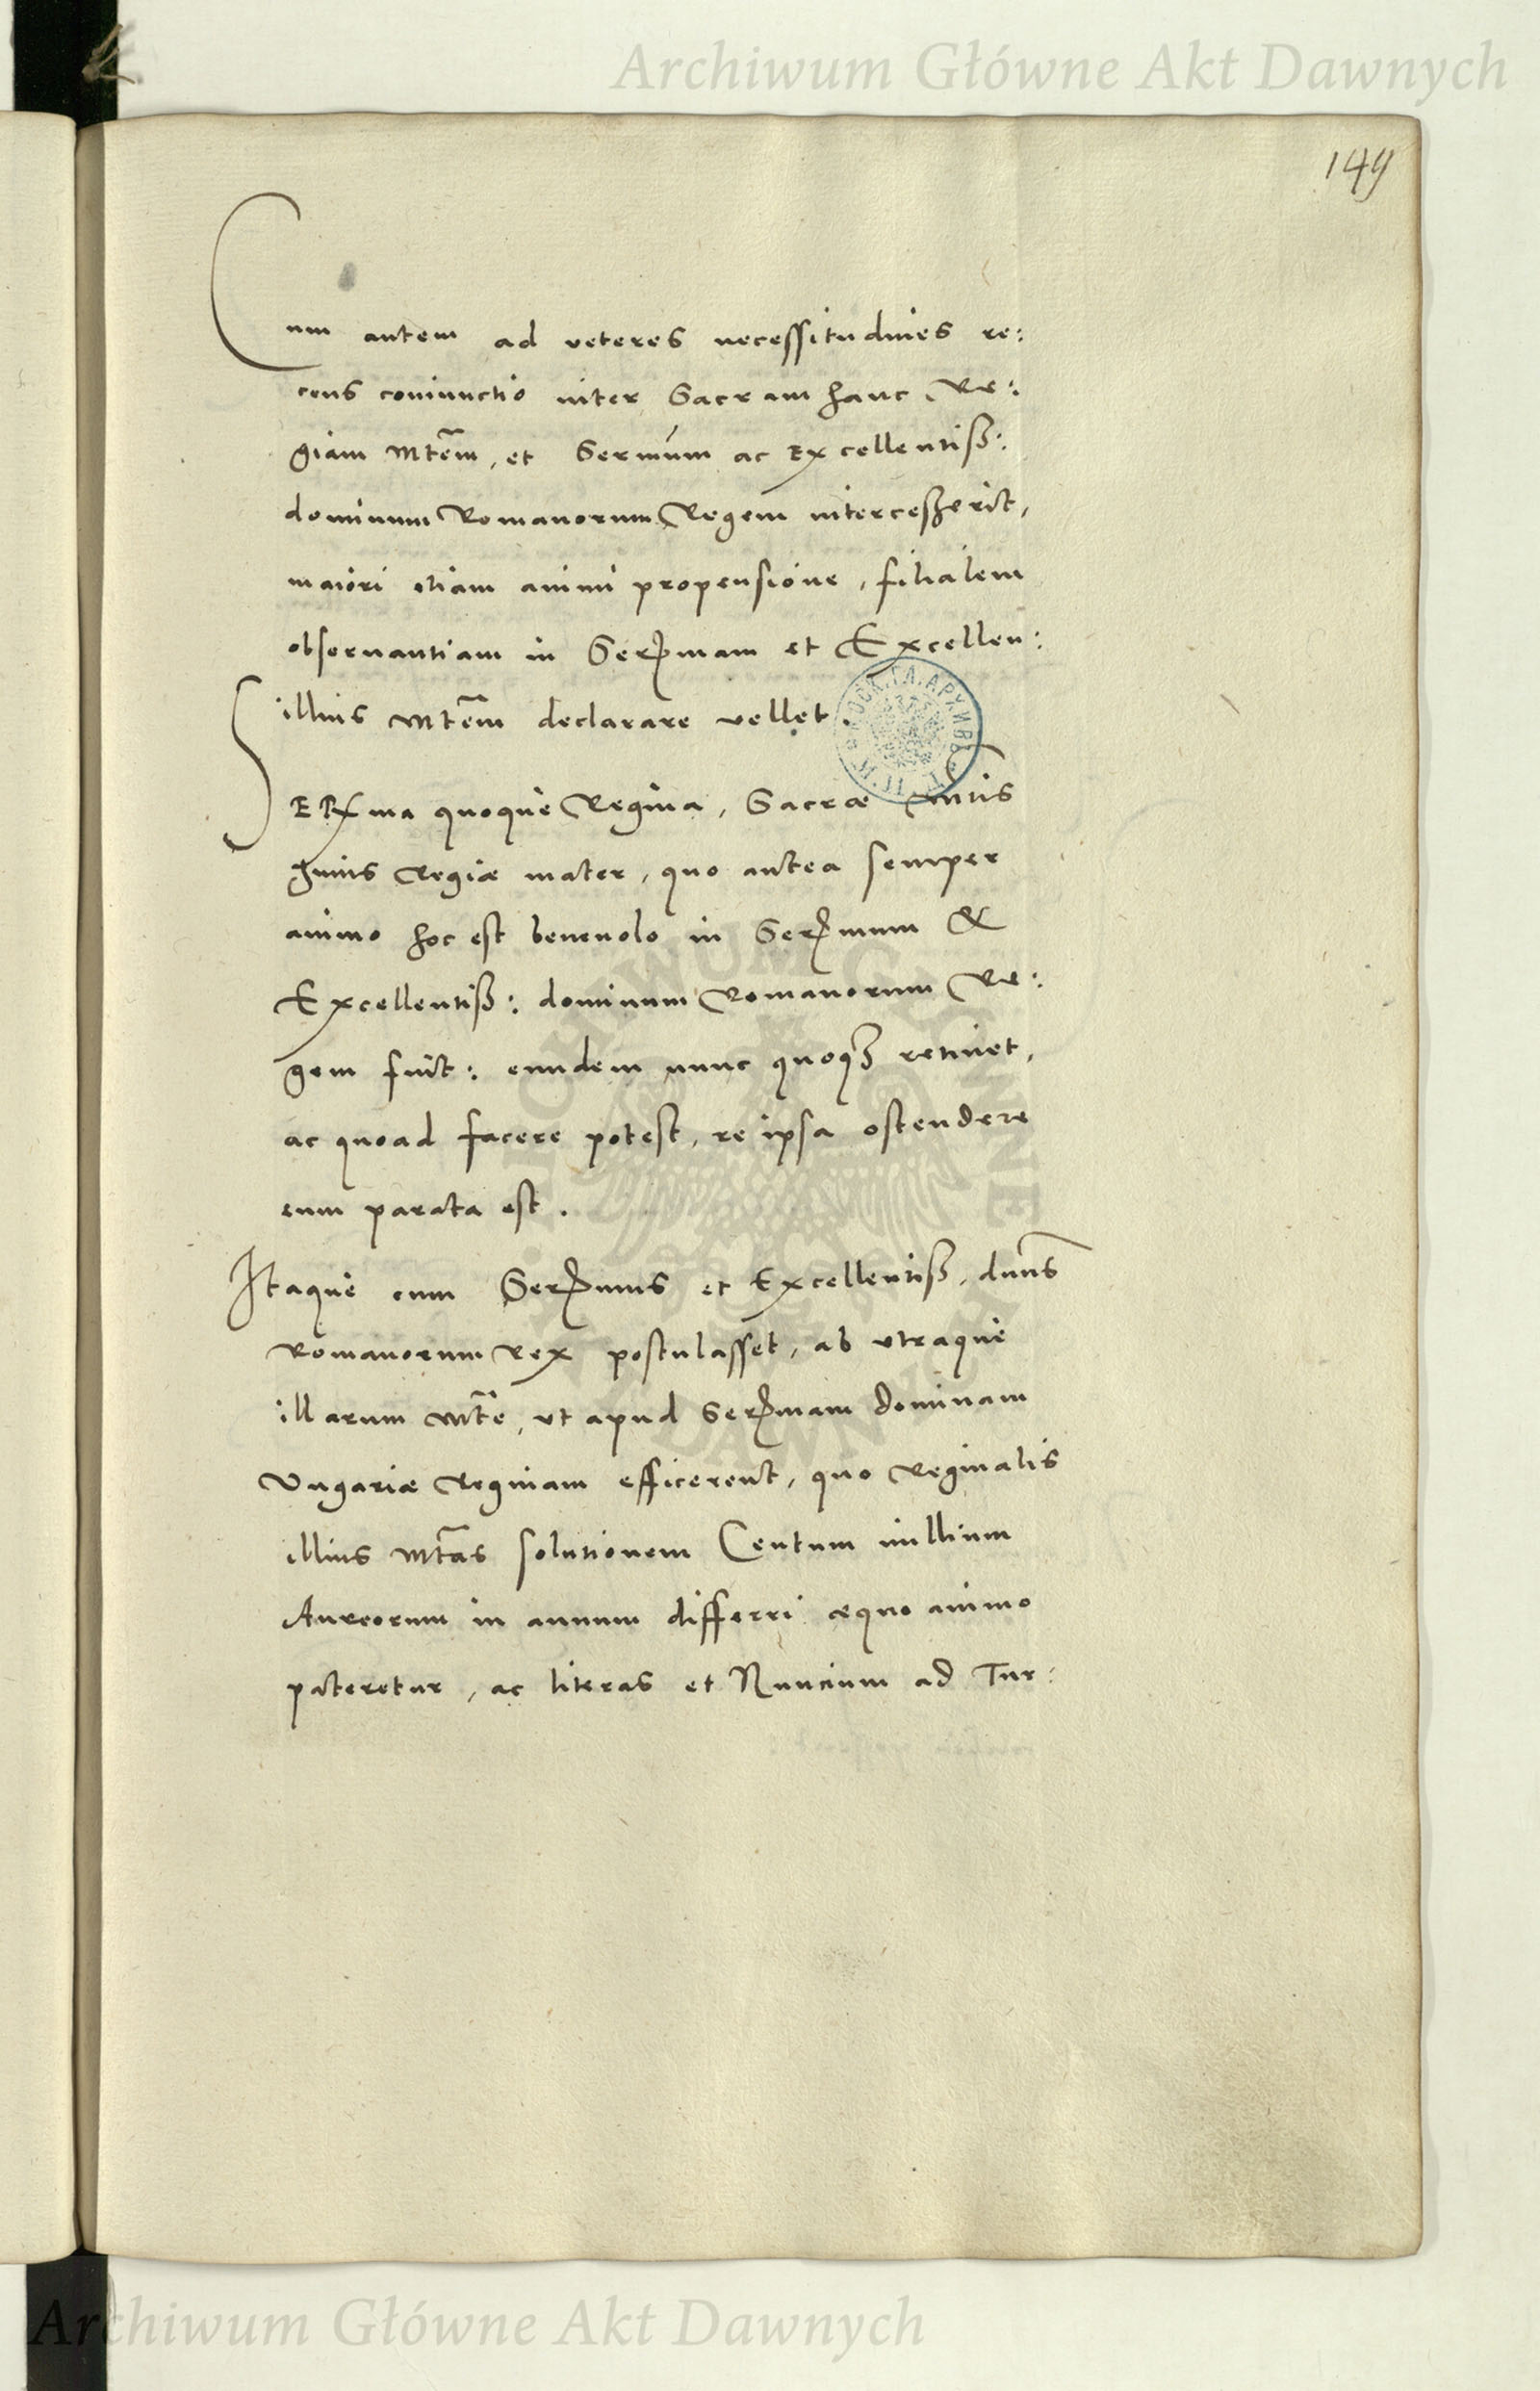 Archiwum Główne Akt Dawnych
149
Cum autem ad veteres necessitudines re:
cens coniunctio inter Sacram hanc Re:
giam Mtem, et Sermum ac Excellentiss:
dominum Romanorum Regem intercesserit,
maiori etiam animi propensione, filialem
obseruantiam in Sermam et Excellen:
illius Mtem declarare vellet.
SERma quoque Regina, Sacrae Mtis
huius Regiae mater, quo antea semper
animo hoc est beneuolo in Sermum &
Excellentiss: dominum Romanorum Re:
gem fuit: eundem nunc quoq3 retinet,
ac quoad facere potest, re ipsa ostendere
eum parata est.
Itaque cum Sermus et Excellentiss. dnns
Romanorum Rex postulasset, ab vtraque
illarum Mte, vt apud Sermam dominam
Vngariae Reginam efficerent, quo Reginalis
illius Mtas solutionem Centum millium
Aureorum in annum differri aequo animo
pateretur, ac literas et Nuncium ad Tur:
Archiwum Główne Akt Dawnych